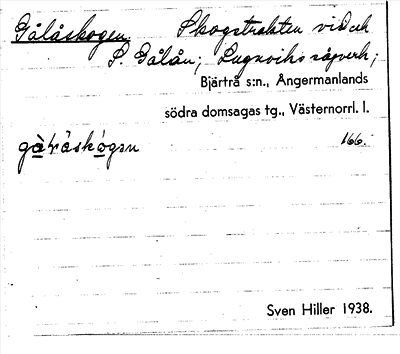 Gålåskogen. Skogstrakten vid och
S. Gålån; Lugnviks sågverk;
Bjärtrå s:n., Ångermanlands
södra domsagas tg., Västernorrl. l.
166.
Sven Hiller 1938.